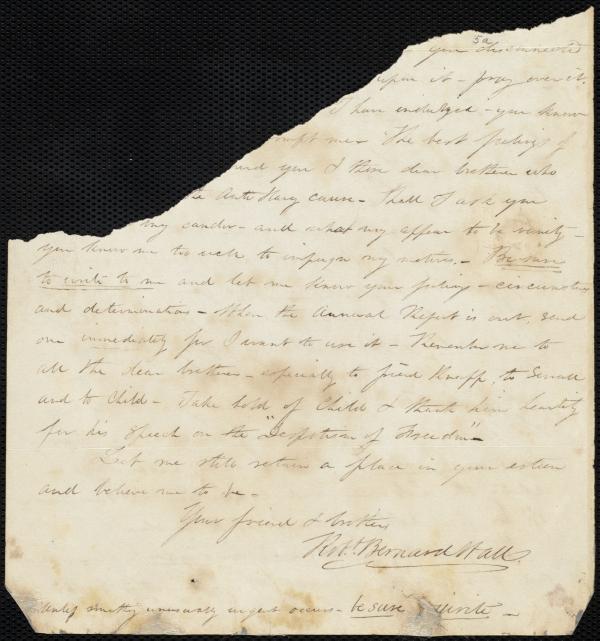 5a
you
upon it - pray over it.
I have indulged - you know
me - The best feelings of
and you & those dear brethren who
Anti Slavery cause - Shall I ask you
my candor - and what my appear to be vanity -
you know me too well to impugn my motives. - Be sure
to write to me and let me know your feelings - circumstances
and determinations - When the Annual Report is out, send
one immediately for I want to use it - Remember me to
all the dear brethren - especially to friend Knapp, to Sewall
and to Child - Take hold of Child & thank him heartily
for his speech on the "Despotism of Freedom" -
Let me still retain a place in your esteem
and believe me to be -
Your friend & brother
Robt. Bernard Hall.
Unless something unusually urgent occurs - be sure & write -